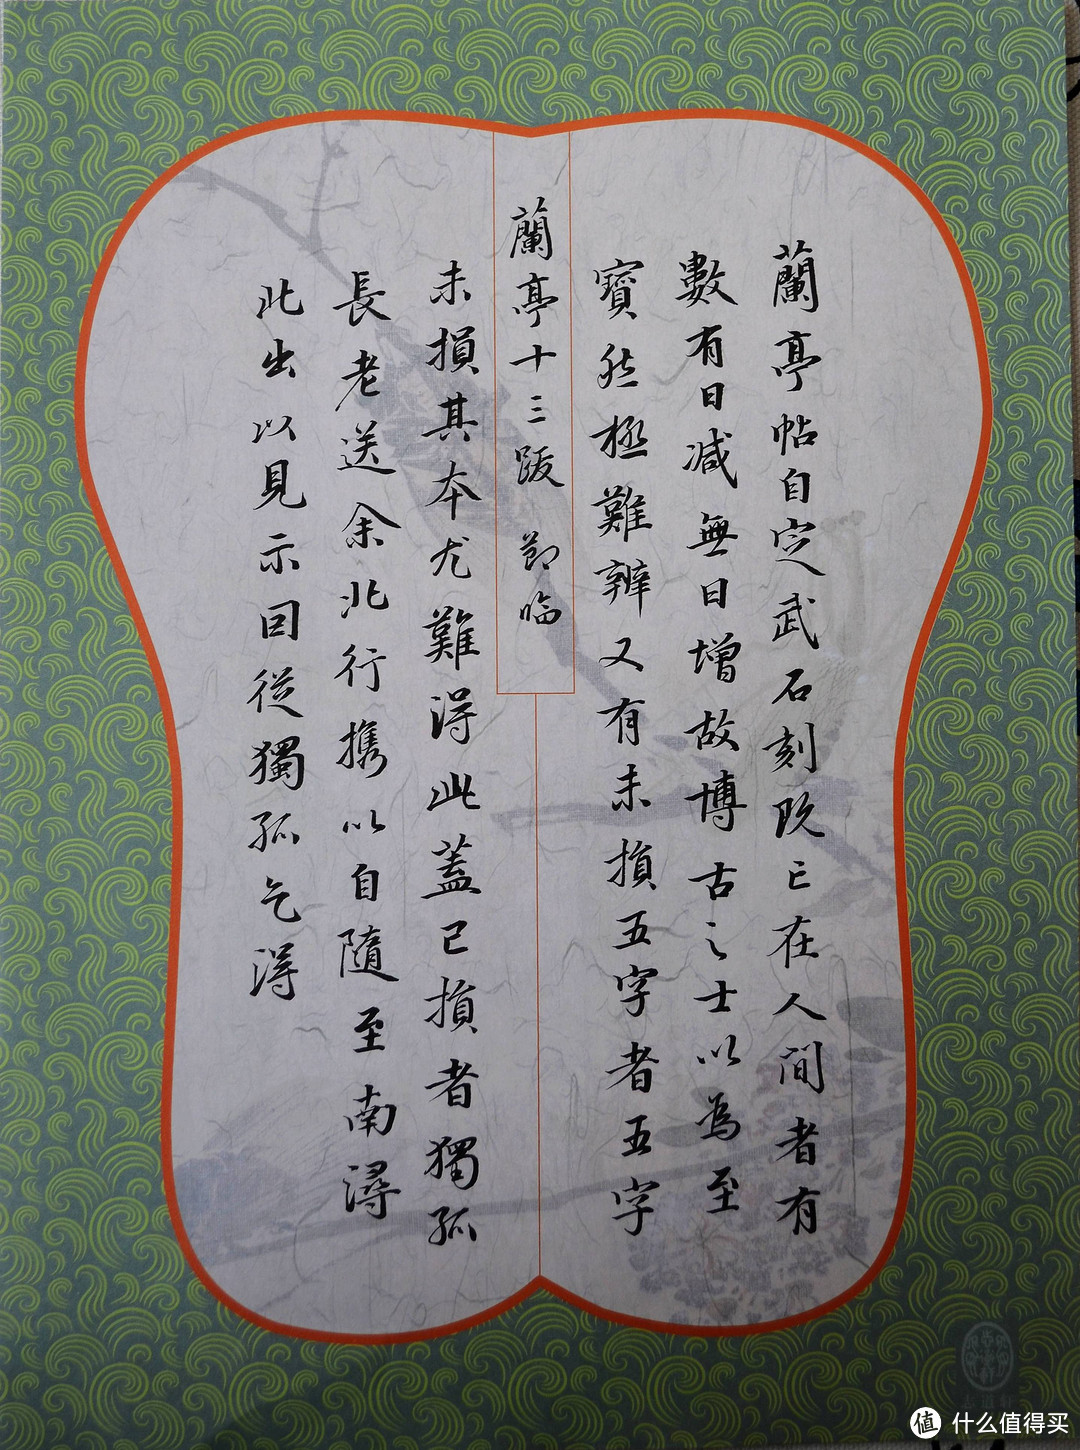 蘭亭帖自定武石刻既亡在人間者有
數有日減無日增故博古之士以為至
寶然極難辨又有未損五字者五字
蘭亭十三跋 節臨
未損其本尤難得此蓋已損者獨孤
長老送余北行携以自隨至南潯
北出以見示因從獨孤乞得
值 什么值得买